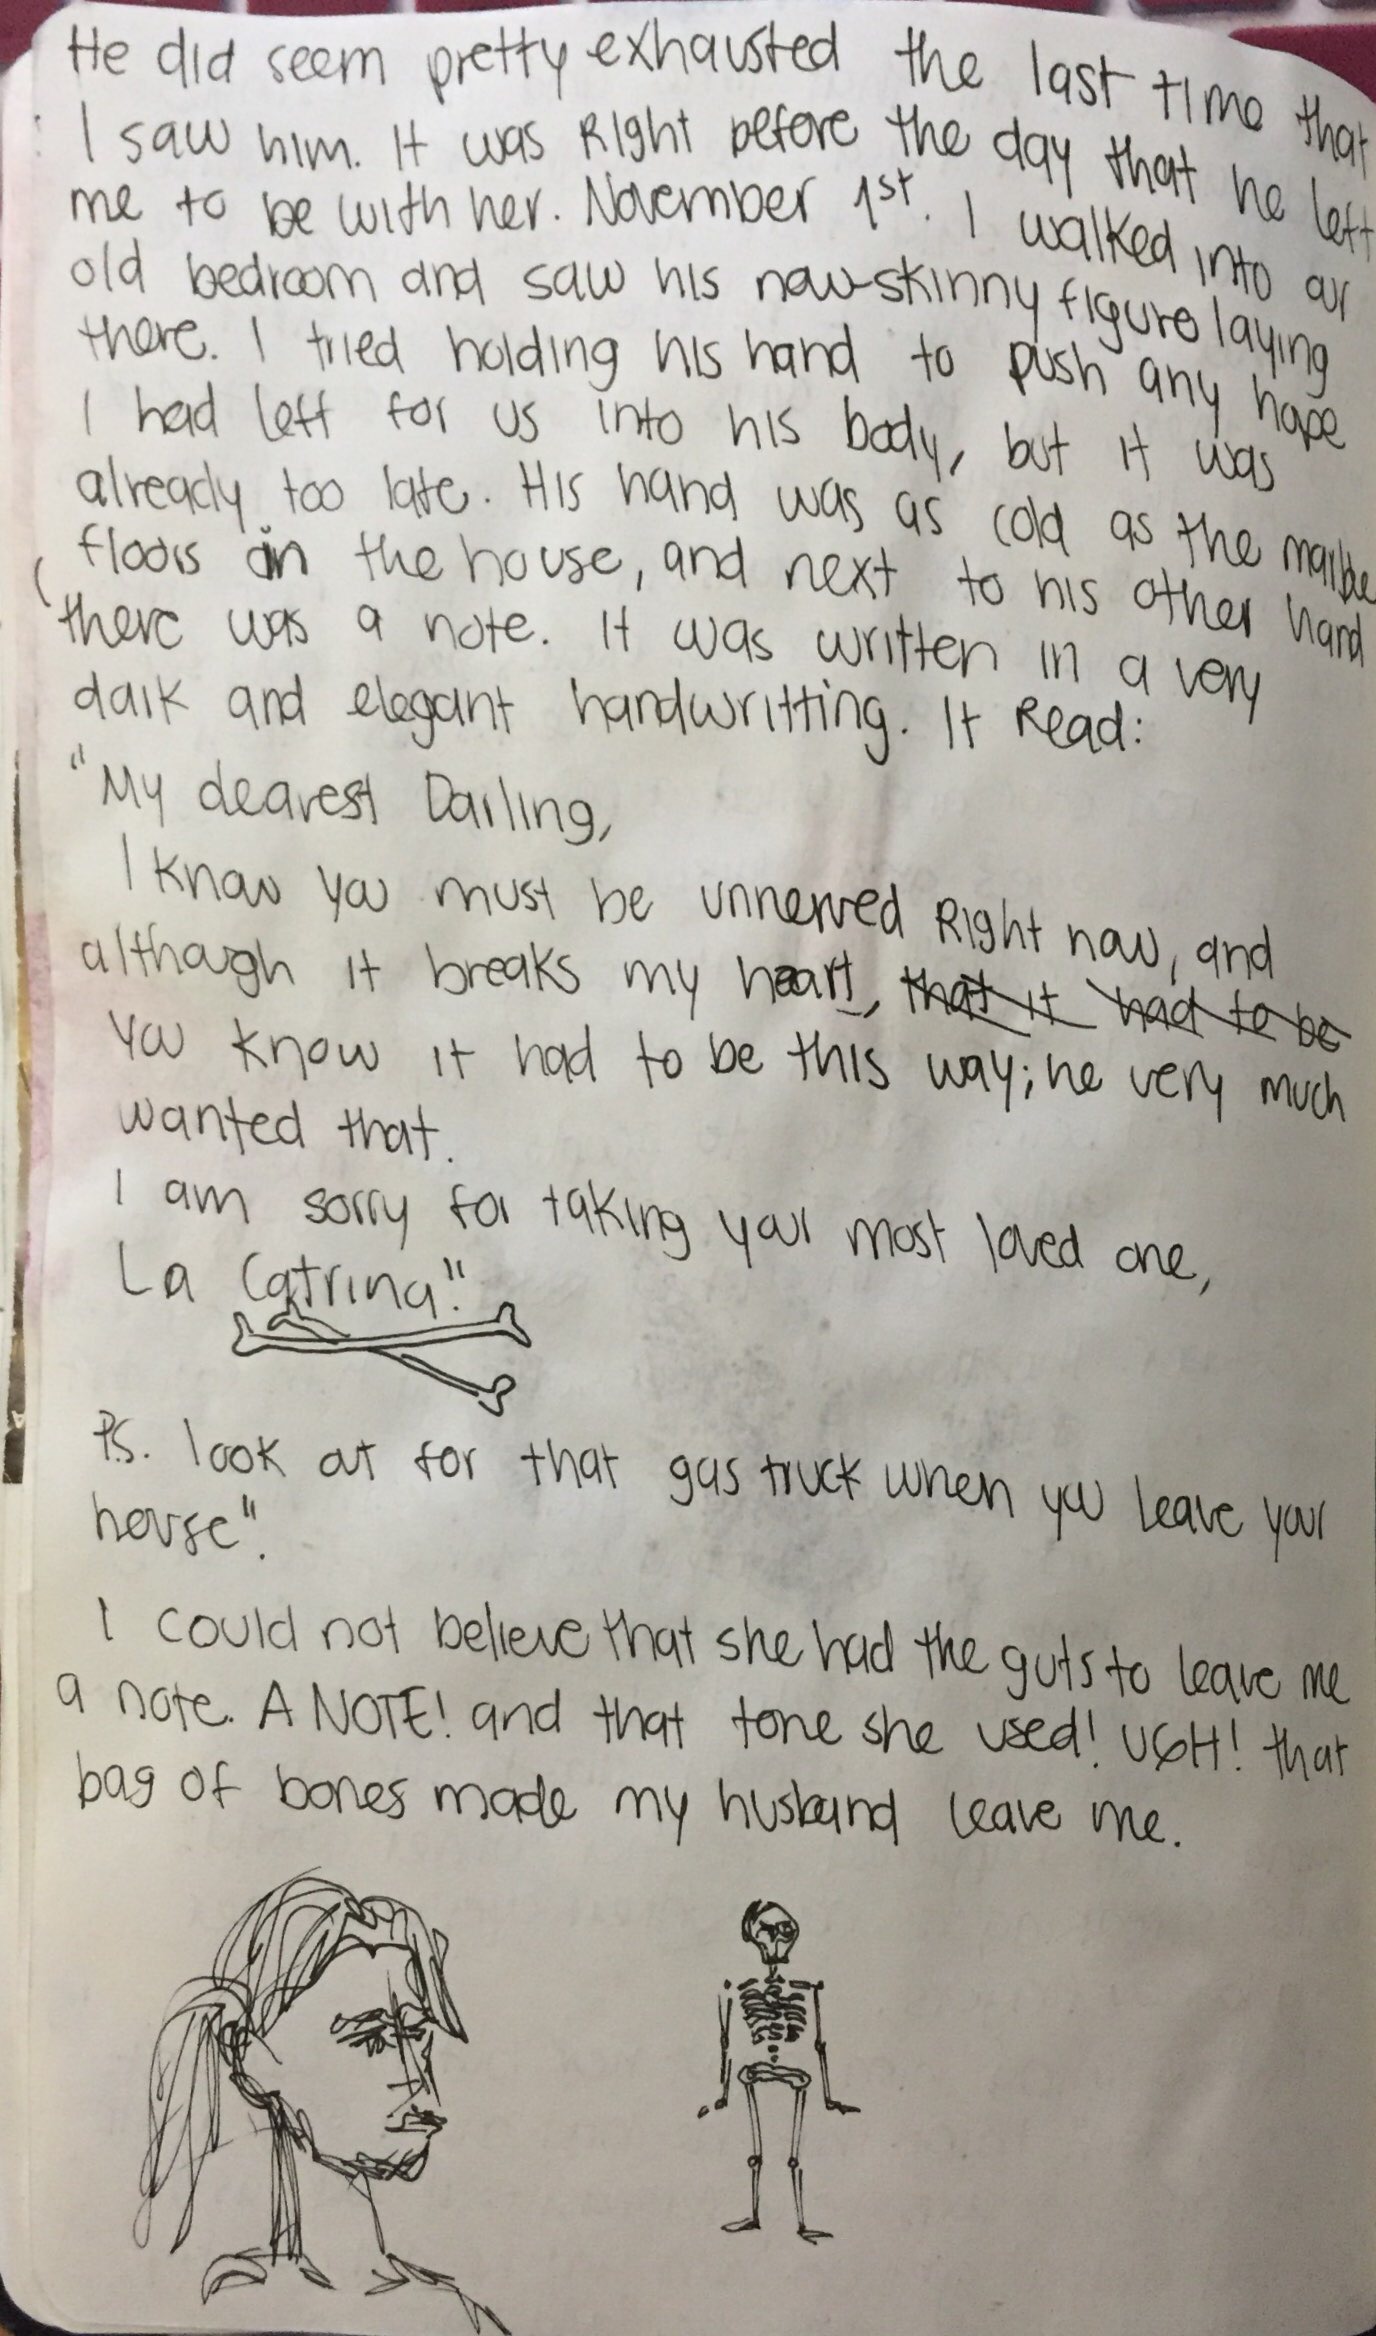 He did seem pretty exhausted the last time that
I saw him. It was Right before the day that he left
me to be with her. November 1st. I walked into our
old bedroom and saw his now-skinny figure laying
there. I tried holding his hand to push any hope
I had left for us into his body, but it was
already too late. His hand was as cold as the marble
floors in the house, and next to his other hand
there was a note. It was written in a very
dark and elegant handwritting. It Read:
"My dearest Darling,
I know you must be unnerved Right now, and
although it breaks my heart, that it had to be
you know it had to be this way; he very much
wanted that.
I am sorry for taking your most loved one,
La Catrina".
P.S. look out for that gas truck when you leave your
house".
I could not believe that she had the guts to leave me
a note. A NOTE! and that tone she used! UGH! that
bag of bones made my husband leave me.